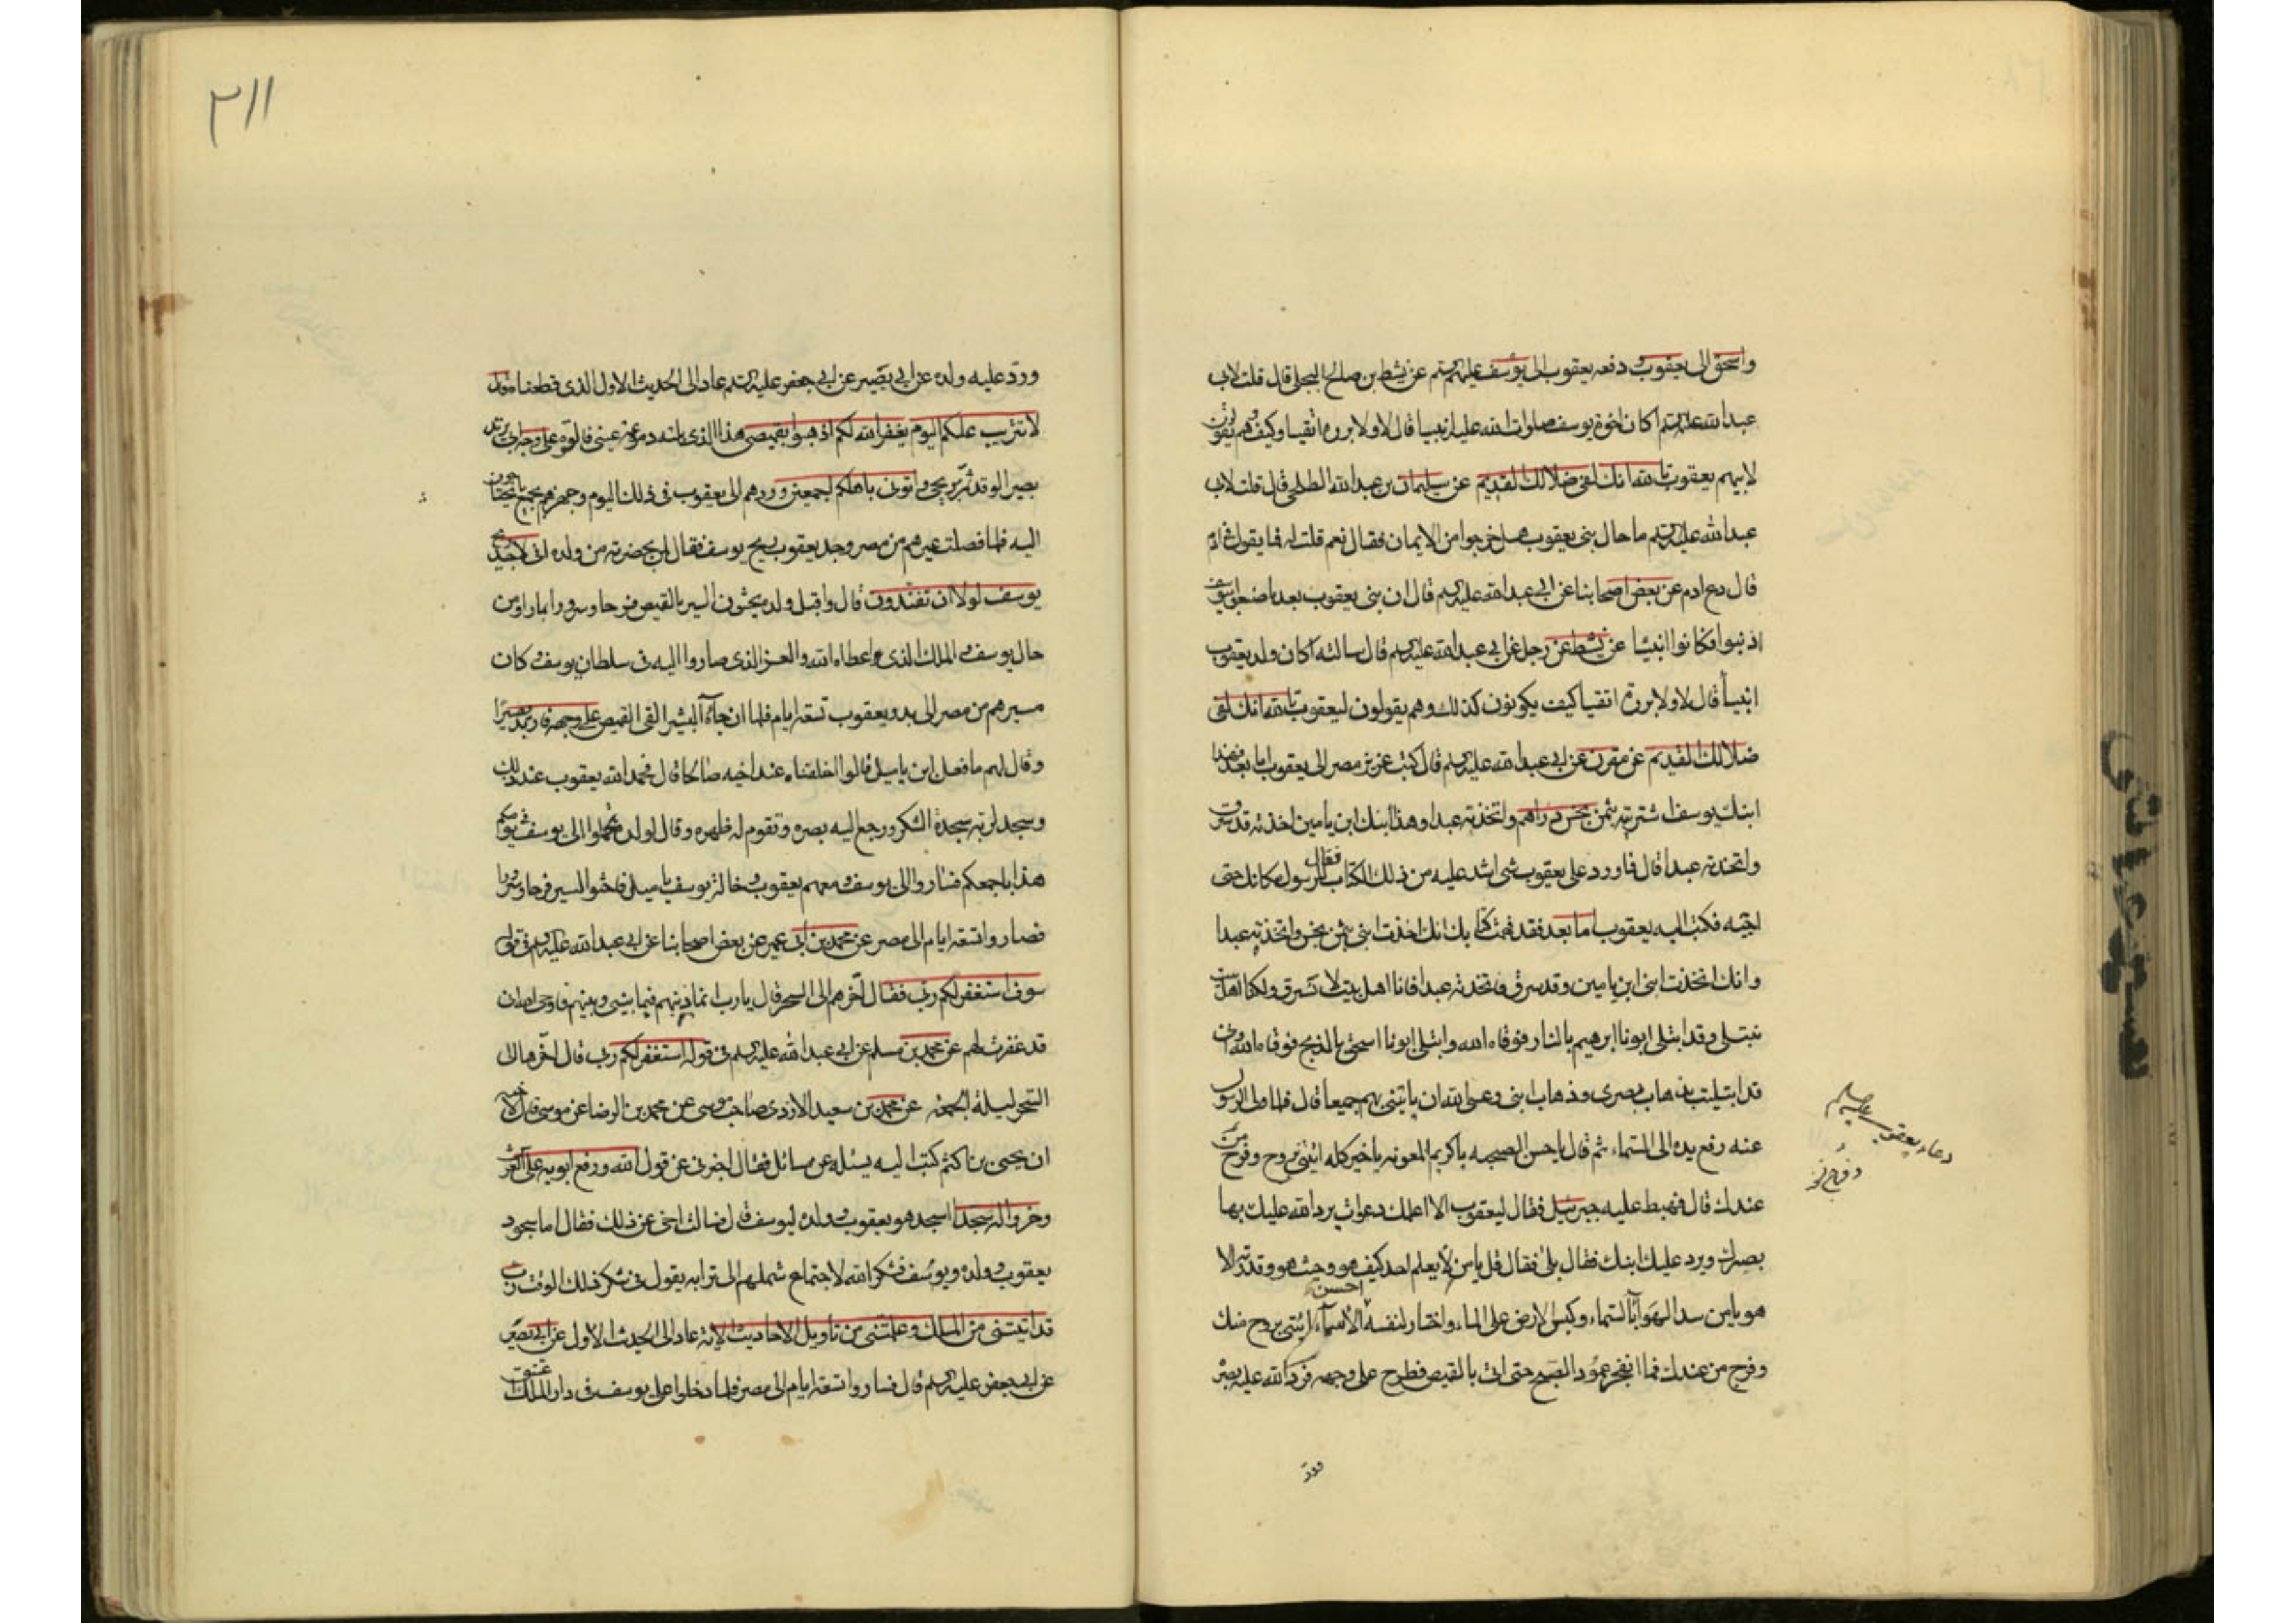 واسحق الى يعقوب دفعه يعقوب الى يوسف عليهم السلم عن نشيط بن صالح البجلى قال قلت لابى
عبدالله عليه السلم اكان اخوة يوسف صلوات الله عليه انبيا قال لا ولا بررة اتقيا وكيف وهم يقولون
لابيهم يعقوب تالله انك لفى ضلالك القديم عن سليمان بن عبدالله الطلحى قال قلت لابى
عبدالله عليه السلم ما حال بنى يعقوب هل خرجوا من الايمان فقال نعم قلت له فما يقول فى ادم
قال دع ادم عن بعض اصحابنا عن ابى عبدالله عليه السلم قال ان بنى يعقوب بعد ما صنعوا بيوسف
اذنبوا فكانوا انبيا عن نشيط عن رجل عن ابى عبدالله عليه السلم قال سالته اكان ولد يعقوب
انبيأ قال لا ولا بررة اتقيا كيف يكونون كذلك وهم يقولون ليعقوب تالله انك لفى
ضلالك القديم عن مقرن عن ابى عبدالله عليه السلم قال كتب عزيز مصر الى يعقوب اما بعد فهذا
ابنك يوسف اشتريته بثمن بخس دراهم واتخذته عبدا وهذا ابنك ابن يامين اخذته قد سرق
واتخذته عبدا قال فما ورد على يعقوب شى اشد عليه من ذلك الكتاب فقال للرسول مكانك حتى
اجيبه فكتب اليه يعقوب اما بعد فقد فهمت كتابك انك اخذت ابنى بثمن بخس واتخذته عبدا
وانك اتخذت ابنى ابن يامين وقد سرق فاتخذته عبدا فانا اهل بيت لا نسرق ولكنا اهل بيت
نبتلى وقد ابتلى ابونا ابرهيم بالنار فوقاه الله وابتلى ابونا اسحق بالذبح فوقاه الله وانى
قد ابتليت بذهاب بصرى وذهاب ابنى وعسى الله ان ياتينى بهم جميعا قال فلما ولى الرسول
عنه رفع يده الى السماء ثم قال يا حسن الصحبه يا كريم المعونه يا خير كله ائتنى بروح وفرج من
عندك قال فهبط عليه جبرئيل فقال ليعقوب الا اعلمك دعوات يرد الله عليك بها
بصرك ويرد عليك ابنك فقال بلى فقال قل يا من لا يعلم احد كيف هو وحيث هو وقدرته الا
هو يا من سد الهوا بالسماء وكبس الارض على الماء واختار لنفسه احسن الاسمآء ائتنى بروح منك
وفرج من عندك فما انفجر عمود الصبح حتى اتى بالقميص فطرح على وجهه فرد الله عليه بصره
دعاء يعقوب عليه السلم
ورد
٢١١
ورد عليه ولده عن ابى بصير عن ابى جعفر عليه السلم عاد الى الحديث الاول الذى قطعناه قال
لا تثريب عليكم اليوم يغفر الله لكم اذهبوا بقميصى هذا الذى بلته دموع عينى فالقوه على وجه ابى يرتد
بصيرا لو قد شم ريحى واتونى باهلكم اجمعين وردهم الى يعقوب فى ذلك اليوم وجهزهم بجميع ما يحتاجون
اليه فلما فصلت عيرهم من مصر وجد يعقوب ريح يوسف فقال لمن بحضرته من ولده انى لاجد ريح
يوسف لولا ان تفندون قال واقبل ولده يحثون السير بالقميص فرحا وسرورا بما راوا من
حال يوسف والملك الذى اعطاه الله والعز الذى صاروا اليه فى سلطان يوسف وكان
مسيرهم من مصر الى بدو يعقوب تسعة ايام فلما ان جآء البشير القى القميص على وجهه فارتد بصيرا
وقال لهم ما فعل ابن ياميل قالوا خلفناه عند اخيه صالحا قال فحمد الله يعقوب عند ذلك
وسجد لربه سجدة الشكر ورجع اليه بصره وتقوم له ظهره وقال لولده تحملوا الى يوسف فى يومكم
هذا باجمعكم فساروا الى يوسف ومعهم يعقوب وخالة يوسف ياميل فاحثوا السير فرحا وسرورا
فصاروا تسعة ايام الى مصر عن محمد بن ابى عمير عن بعض اصحابنا عن ابى عبدالله عليه السلم فى قوله
سوف استغفر لكم ربى فقال اخرهم الى السحر قال يا رب انما ذنبهم فيما بينى وبينهم فاوحى الله ان
قد غفرت لهم عن محمد بن مسلم عن ابى عبدالله عليه السلم فى قوله استغفر لكم ربى قال اخرها الى
السحر ليلة الجمعه عن محمد بن سعيد الازدى صاحب موسى عن محمد بن الرضا عن موسى قال لاخيه
ان يحيى بن اكثم كتب اليه يسئله عن مسائل فقال اخبرنى عن قول الله ورفع ابويه على العرش
وخروا له سجدا اسجد هو يعقوب وولده ليوسف قال فسالت اخى عن ذلك فقال اما سجود
يعقوب وولده ويوسف فشكرا لله لاجتماع شملهم الم تر انه يقول فى شكر ذلك الوقت رب
قد اتيتنى من الملك وعلمتنى من تاويل الاحاديث الاية عاد الى الحديث الاول عن ابى بصير
عن ابى جعفر عليه السلم قال فساروا تسعة ايام الى مصر فلما دخلوا على يوسف فى دار الملك اعتنق